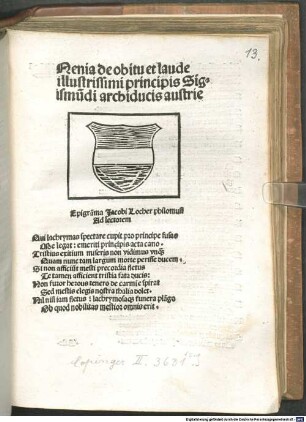 13.
Nenia de obitu et laude
illustrissimi principis Sig⸗
ismūdi archiducis austrie
Epigrāma Jacobi Locher philomusi
Ad lectorem
Qui lachrymas spectare cupit pro principe fusas
Me legat: emeriti principis acta cano.
Tristius exitium miseris non vidimus vnq̄
Quam nunc tam largum morte perisse ducem.
Si non afficiūt mesti precordia fletus
Te tamen afficient tristia fata ducis:
Non furor herous tenero de carmīe spirat
Sed mestis elegis nostra thalia dolet.
Nil nisi iam fletus: lachrymosaq3 funera plāgo
Ob quod nobilitas mestior omnis erit.